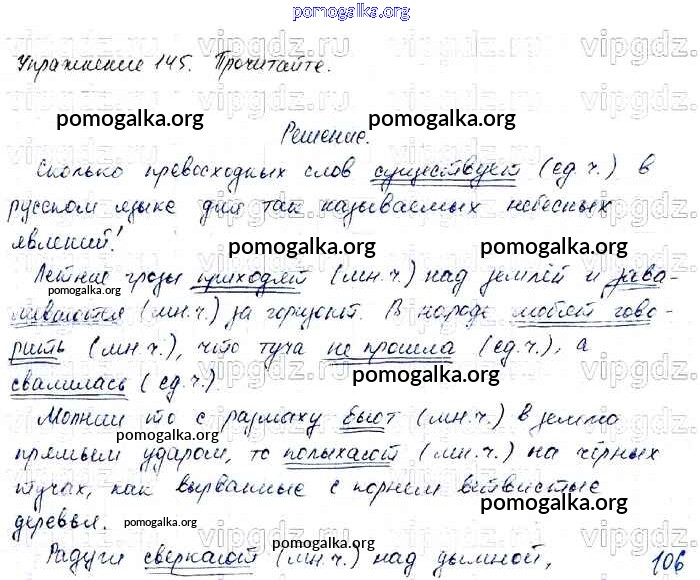 pomogalka.org
Упражнение 145. Прочитайте.
pomogalka.org pomogalka.org
Решение.
Сколько превосходных слов существует (ед.ч.) в
русском языке для так называемых небесных
явлений!
pomogalka.org pomogalka.org
Летние грозы приходят (мн.ч.) над землёй и зава-
pomogalka.org
ливаются (мн.ч.) за горизонт. В народе любят гово-
рить (мн.ч.), что туча не прошла (ед.ч.), а
свалилась (ед.ч.).
pomogalka.org
Молнии то с размаху бьют (мн.ч.) в землю
pomogalka.org
прямым ударом, то полыхают (мн.ч.) на чёрных
тучах, как вырванные с корнем ветвистые
pomogalka.org
деревья.
pomogalka.org
Радуги сверкают (мн.ч.) над дымной,
pomogalka.org pomogalka.org
106